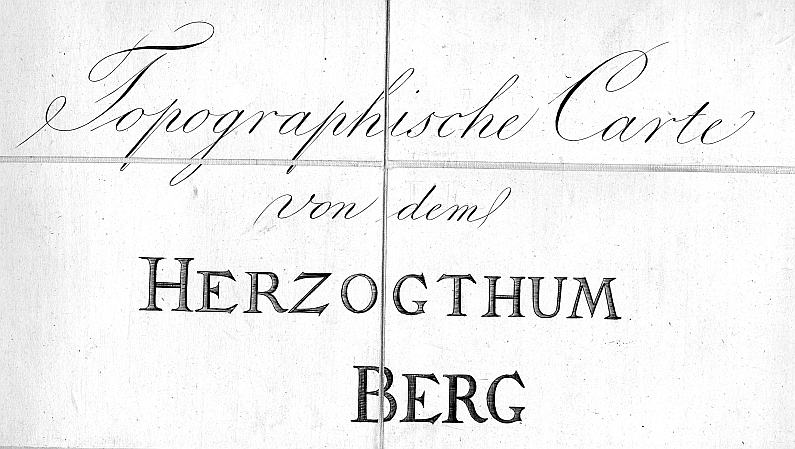 Topographische Carte
von dem
HERZOGTHUM
BERG